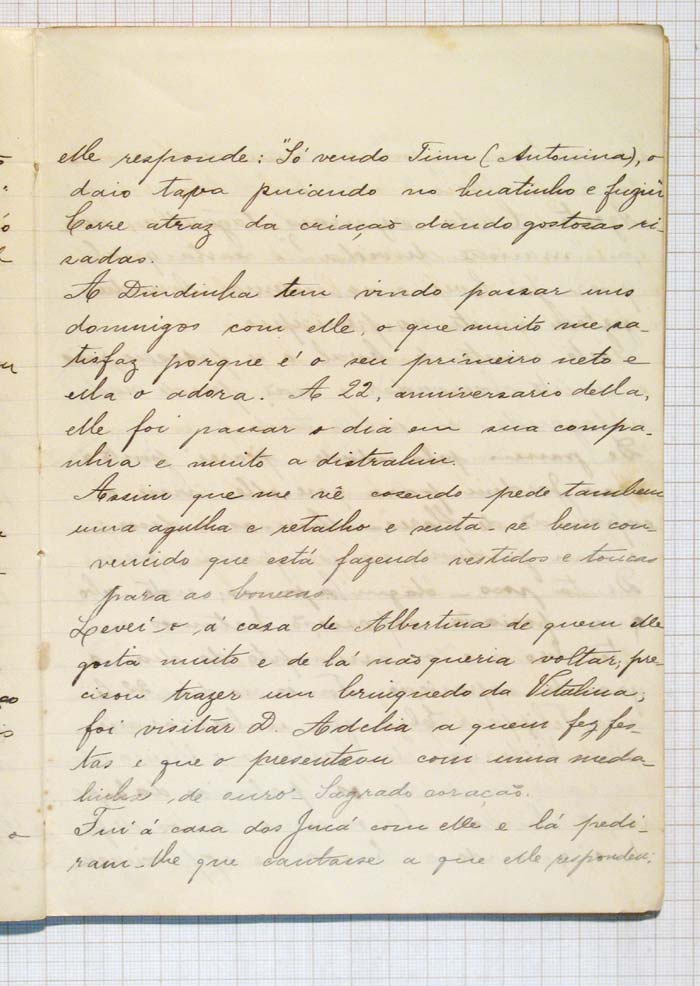 elle responde: "Só vendo Tinin (Antonina), o
daio tava puiando no buatinho e fugiu"
Corre atraz da criação dando gostosas ri-
sadas.
A Dindinha tem vindo passar uns
domingos com elle, o que muito me sa-
tisfaz porque é o seu primeiro neto e
ella o adora. A 22, anniversario della,
elle foi passar o dia em sua compa-
nhia e muito a distrahiu.
Assim que me vê cosendo pede tambem
uma agulha e retalho e senta-se bem con-
vencido que está fazendo vestidos e toucas
para as bonecas
Levei-o á casa de Albertina de quem elle
gosta muito e de lá não queria voltar; pre-
cisou trazer um brinquedo da Vitalina;
foi visitar D. Adelia a quem fez fes-
tas e que o presenteou com uma meda-
lhinha de ouro - Sagrado coração.
Fui á casa dos Jucá com elle e lá pedi-
ram-lhe que cantasse a que elle respondeu: